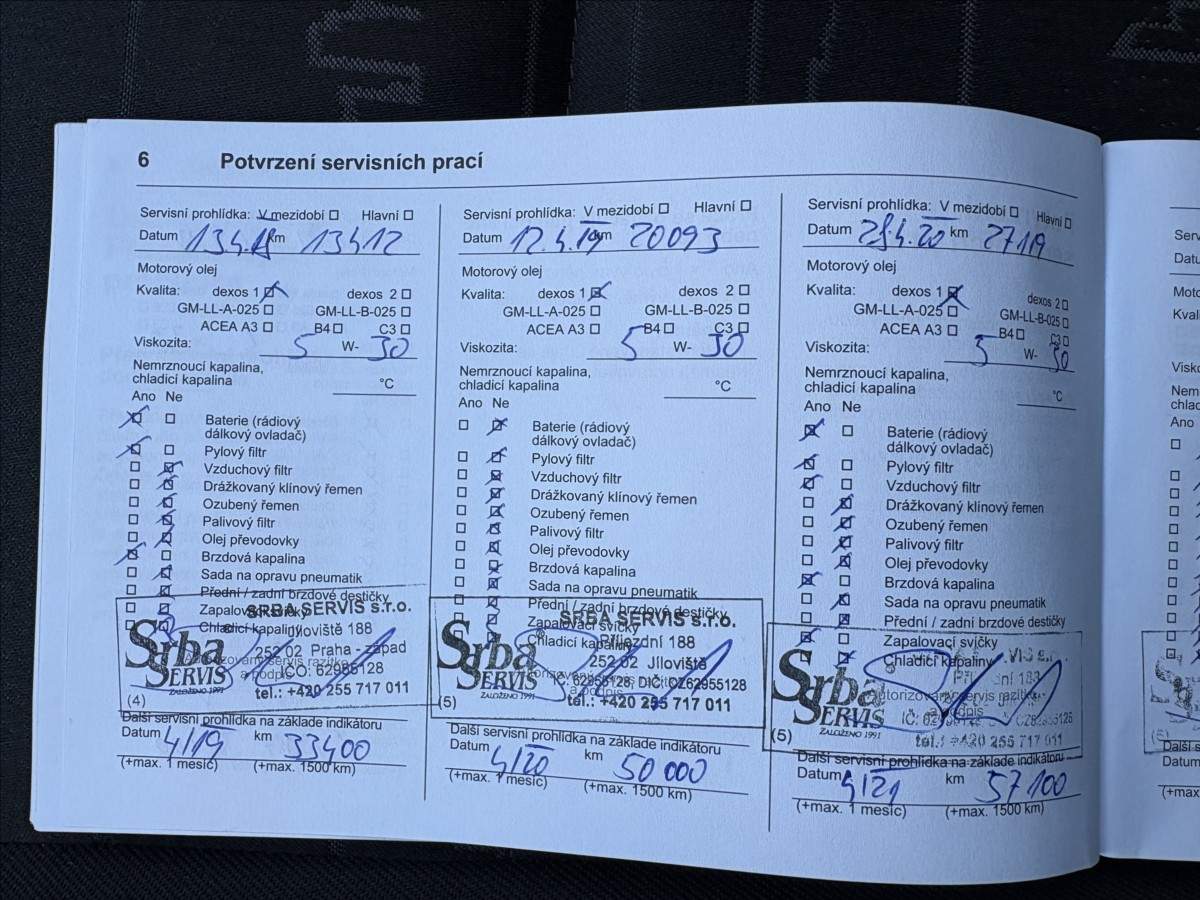 6 Potvrzení servisních prací
Servisní prohlídka: V mezidobí Hlavní
Datum 13.4.18 km 13412
Motorový olej
Kvalita: dexos 1 dexos 2
GM-LL-A-025 GM-LL-B-025
ACEA A3 B4 C3
Viskozita: 5 W- 30
Nemrznoucí kapalina,
chladicí kapalina °C
Ano Ne
Baterie (rádiový
dálkový ovladač)
Pylový filtr
Vzduchový filtr
Drážkovaný klínový řemen
Ozubený řemen
Palivový filtr
Olej převodovky
Brzdová kapalina
Sada na opravu pneumatik
Přední / zadní brzdové destičky
Zapalovací svíčky
Chladicí kapaliny
SRBA SERVIS s.r.o.
Jíloviště 188
252 02 Praha - západ
IČO: 62955128
tel.: +420 255 717 011
Srba
SERVIS
ZALOŽENO 1991
Autorizovaný servis razítko
a podpis
(4)
Další servisní prohlídka na základě indikátoru
Datum 4/19 km 33400
(+max. 1 měsíc) (+max. 1500 km)
Servisní prohlídka: V mezidobí Hlavní
Datum 12.4.19 km 20093
Motorový olej
Kvalita: dexos 1 dexos 2
GM-LL-A-025 GM-LL-B-025
ACEA A3 B4 C3
Viskozita: 5 W- 30
Nemrznoucí kapalina,
chladicí kapalina °C
Ano Ne
Baterie (rádiový
dálkový ovladač)
Pylový filtr
Vzduchový filtr
Drážkovaný klínový řemen
Ozubený řemen
Palivový filtr
Olej převodovky
Brzdová kapalina
Sada na opravu pneumatik
Přední / zadní brzdové destičky
Zapalovací svíčky
Chladicí kapaliny
SRBA SERVIS s.r.o.
Příjezdní 188
252 02 Jíloviště
IČ: 62955128, DIČ: CZ62955128
tel.: +420 255 717 011
Srba
SERVIS
ZALOŽENO 1991
a podpis
(5)
Další servisní prohlídka na základě indikátoru
Datum 4/20 km 50 000
(+max. 1 měsíc) (+max. 1500 km)
Servisní prohlídka: V mezidobí Hlavní
Datum 28.4.20 km
Motorový olej
Kvalita: dexos 1 dexos 2
GM-LL-A-025 GM-LL-B-025
ACEA A3 B4 C3
Viskozita: 5 W- 30
Nemrznoucí kapalina,
chladicí kapalina °C
Ano Ne
Baterie (rádiový
dálkový ovladač)
Pylový filtr
Vzduchový filtr
Drážkovaný klínový řemen
Ozubený řemen
Palivový filtr
Olej převodovky
Brzdová kapalina
Sada na opravu pneumatik
Přední / zadní brzdové destičky
Zapalovací svíčky
Chladicí kapaliny
Srba
SERVIS
ZALOŽENO 1991
Autorizovaný servis razítko
a podpis
tel.: +420 255 717 011
(5)
Další servisní prohlídka na základě indikátoru
Datum 4/21 km 57 100
(+max. 1 měsíc) (+max. 1500 km)
Ano